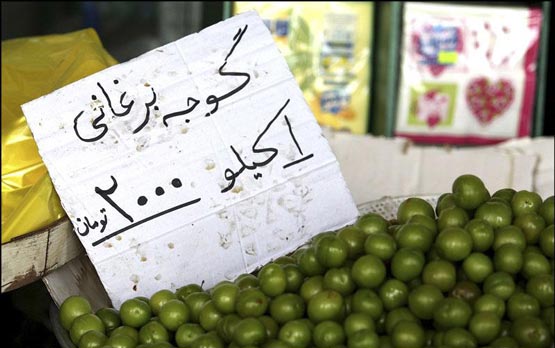 گوجه برغانی
۱ کیلو
۲۰۰۰ تومان